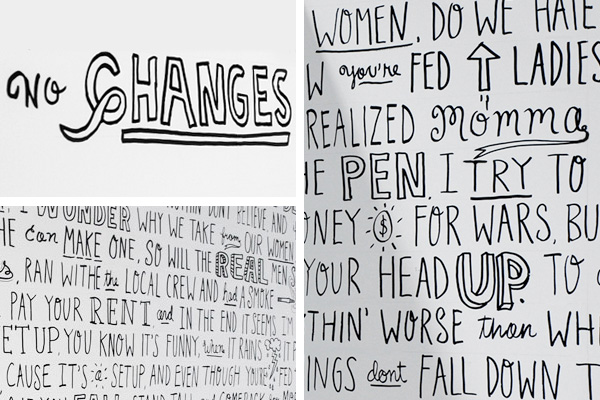 No CHANGES
I WONDER WHY WE TAKE from OUR WOMEN
HE can MAKE ONE, SO WILL THE REAL MEN
RAN WITH the LOCAL CREW AND had A SMOKE
PAY YOUR RENT, and IN THE END IT SEEMS I'M
ET UP, YOU KNOW IT'S FUNNY, when IT RAINS
CAUSE IT'S a SETUP, AND EVEN THOUGH YOU'RE FED
WOMEN. DO WE HATE
W you're FED ↑ LADIES
REALIZED Momma
HE PEN, I TRY TO
ONEY $ FOR WARS, BU
YOUR HEAD UP. TO
THIN' WORSE than WH
INGS dont FALL DOWN T